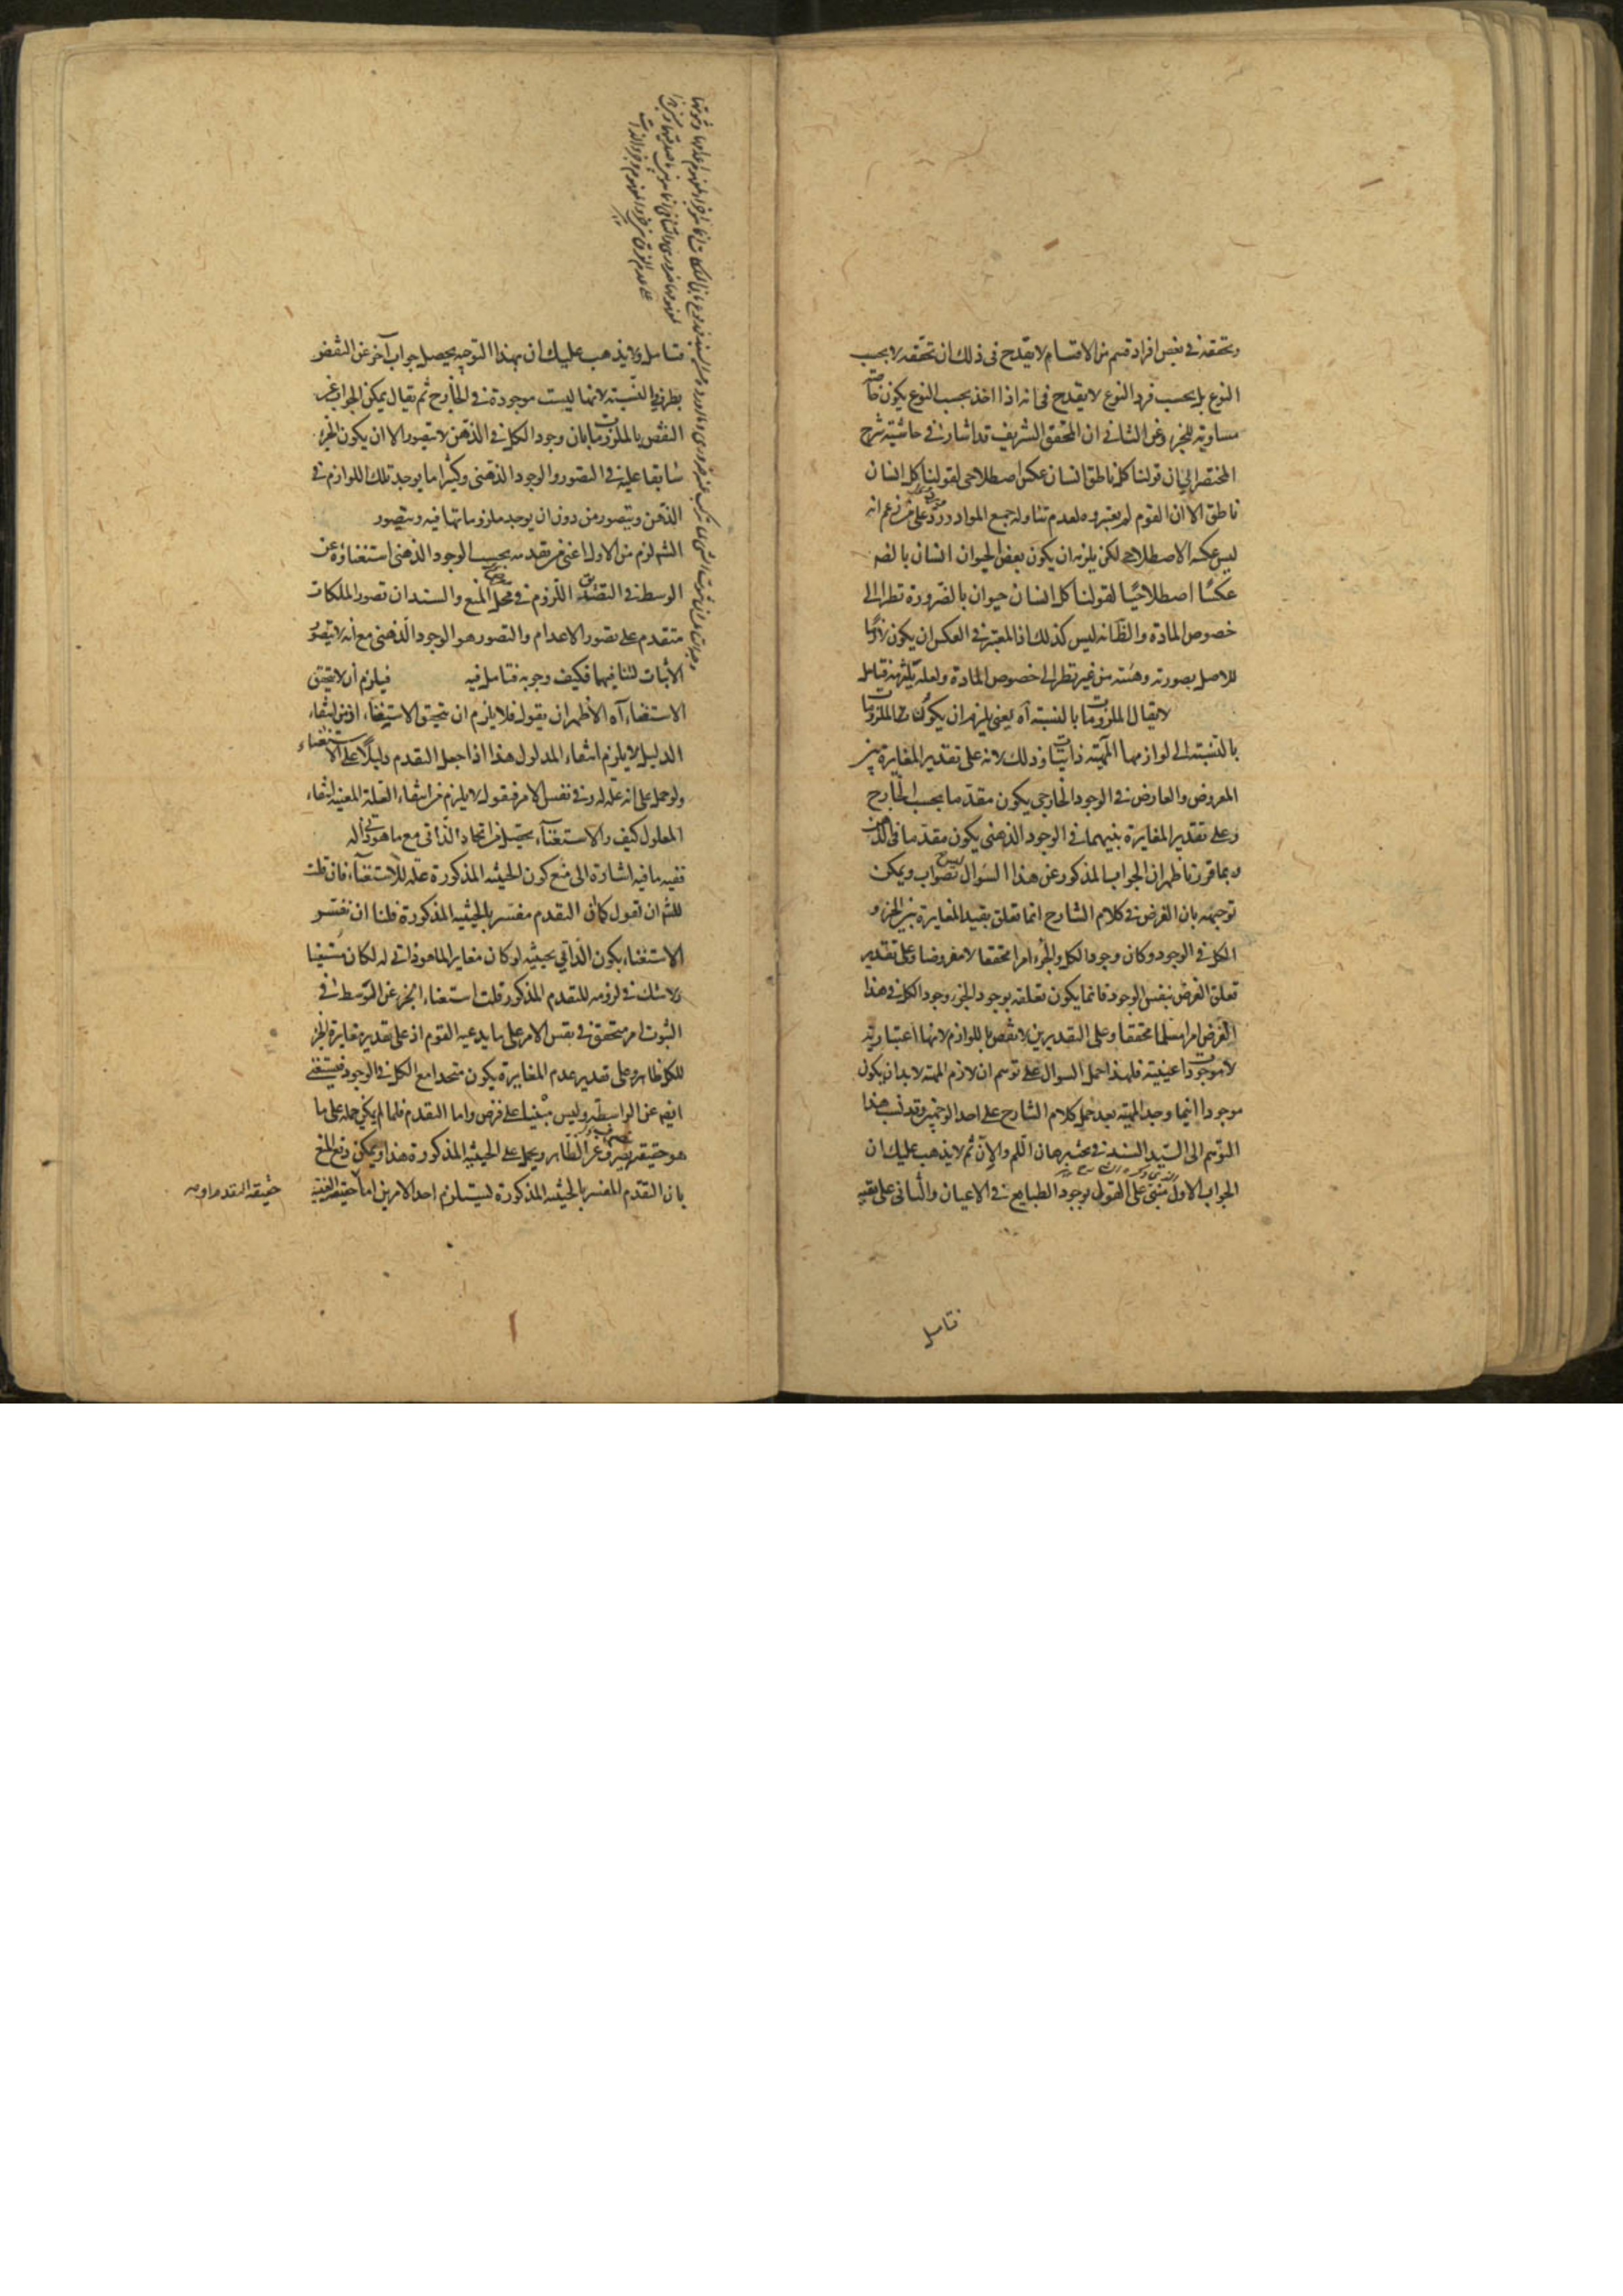 وتحققه في بعض افراد قسم من الاقسام لا يقدح في ذلك ان تحققه لا بحسب
النوع بل بحسب فرد النوع لا يقدح في انه اذا اخذ بحسب النوع يكون خاصة
مساوية للجزء وعن الثاني ان المحقق الشريف قد اشار في حاشية شرح
المختصر الى ان قولنا كل ناطق انسان عكس اصطلاحي لقولنا كل انسان
ناطق الا ان القوم لم يعتبروه لعدم تناوله جميع المواد ورد على من زعم انه
ليس عكسه الاصطلاحي لكن يلزمه ان يكون بعض الحيوان انسان بالضرورة
عكسًا اصطلاحيًا لقولنا كل انسان حيوان بالضرورة نظرا الى
خصوص المادة والظ انه ليس كذلك اذ المعتبر في العكس ان يكون لازما
للاصل بصورته وهيئته من غير نظر الى خصوص المادة ولعله يلتزمه فتامل
لا يقال الملزومات بالنسبة آه يعني يلزم ان يكون تلك الملزومات
بالنسبة الى لوازمها المهية ذاتيات وذلك لانه على تقدير المغايرة بين
المعروض والعارض في الوجود الخارجي يكون مقدما بحسب الخارج
وعلى تقدير المغايرة بينهما في الوجود الذهني يكون مقدما في الذهن
وبما قررنا ظهر ان الجواب المذكور عن هذا السؤال ليس بصواب ويمكن
توجيهه بان الفرض في كلام الشارح انما تعلق بقيد المغايرة بين الجزء و
الكل في الوجود وكان وجود الكل والجزء امرا محققا لا مفروضا وعلى تقدير
تعلق الفرض بنفس الوجود فانما يكون تعلقه بوجود الجزء وجود الكل في هذا
الفرض امرا مسلما محققا وعلى التقديرين لا نقض باللوازم لانها اعتبارية
لا موجودات عينية فلهذا حمل السؤال على توهم ان لازم المهية لا بد ان يكون
موجودا اينما وجد المهية بعد حمل كلام الشارح على احد الوجهين وقد نسب هذا
التوهم الى السيد السند في بحث برهان اللم والان ثم لا يذهب عليك ان
الجواب الاول مبني على القول بوجود الطبايع في الاعيان والثاني على نفيه
فتامل
فتامل ولا يذهب عليك ان بهذا التوجيه يحصل جواب آخر عن النقض
بطرفي النسبة لانها ليست موجودة في الخارج ثم يقال يمكن الجواب عن
النقض بالملزومات بان وجود الكل في الذهن لا يتصور الا ان يكون الجزء
سابقا عليه في التصور والوجود الذهني وكثيرا ما يوجد تلك اللوازم في
الذهن ويتصور من دون ان يوجد ملزوماتها فيه ويتصور
الشم لزم من الاول اعني من تقدمه بحسب الوجود الذهني استغناؤه عن
الوسط في التصديق اللزوم في محل المنع والسند ان تصور الملكات
متقدم على تصور الاعدام والتصور هو الوجود الذهني مع انه لا يتصور
الاثبات لتنافيهما فكيف وجوبه فتامل فيه فيلزم ان لا يتحقق
الاستغناء آه الاظهر ان يقول فلا يلزم ان يتحقق الاستغناء اذ من انتفاء
الدليل لا يلزم انتفاء المدلول هذا اذا جعل التقدم دليلا على الاستغناء
ولو حمل على انه علة له في نفس الامر فيقول لا يلزم من انتفاء العلة المعينة انتفاء
المعلول كيف والاستغناء يحصل من اتحاد الذاتي مع ما هو ذاتي له
ففيه ما فيه اشارة الى منع كون الحيثية المذكورة علة للاستغناء فان قلت
للشم ان تقول كما ان التقدم مفسر بالحيثية المذكورة فلنا ان نفسر
الاستغناء بكون الذاتي بحيثية لو كان مغايرا لما هو ذاتي له لكان مستغنيا
ولا شك في لزومه للتقدم المذكور قلت استغناء الجزء عن التوسط في
الثبوت امر متحقق في نفس الامر على ما يدعيه القوم اذ على تقدير مغايرة الجزء
للكل ظاهر وعلى تقدير عدم المغايرة يكون متحدا مع الكل في الوجود فيستغني
ايضا عن الواسطة وليس مبنيا على فرض واما التقدم فلما لم يكن حمله على ما
هو حقيقة يصرف عن الظاهر ويحمل على الحيثية المذكورة هذا ويمكن دفع المنع
بان التقدم المفسر بالحيثية المذكورة يستلزم احد الامرين اما حقيقة العينية
حقيقة التقدم او